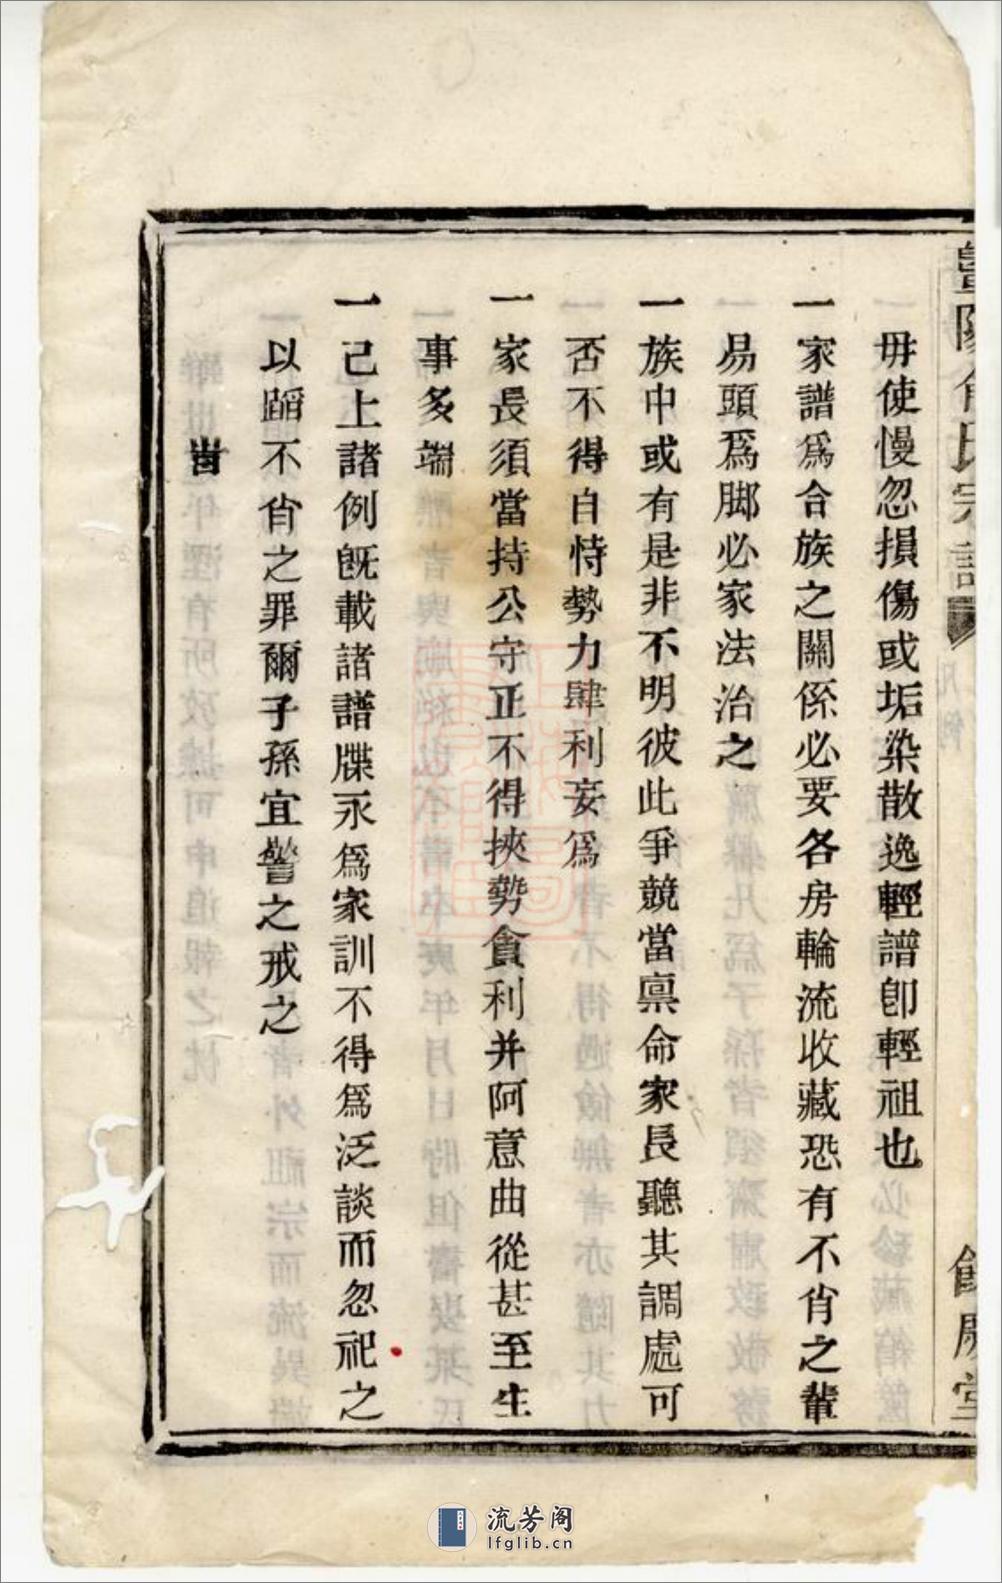 毋使慢忽損傷或垢染散逸輕譜卽輕祖也
一家譜爲合族之關係必要各房輪流收藏恐有不肖之輩
易頭爲脚必家法治之
一族中或有是非不明彼此爭競當禀命家長聽其調處可
否不得自恃勢力肆利妄爲
一家長須當持公守正不得挾勢貪利并阿意曲從甚至生
事多端
一己上諸例旣載諸譜牒永爲家訓不得爲泛談而忽祀之
以蹈不肖之罪爾子孫宜警之戒之
流芳阁
lfglib.cn